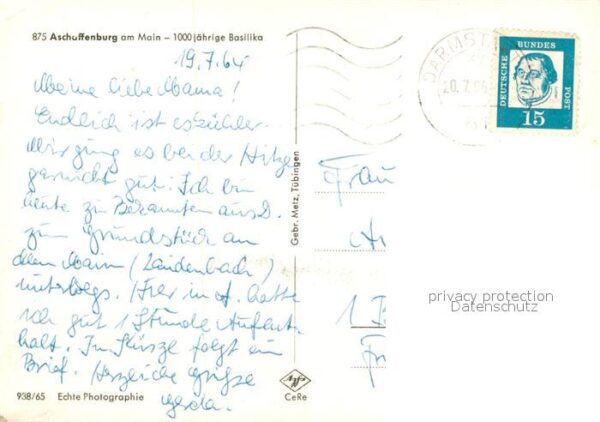 875 Aschaffenburg am Main – 1000jährige Basilika
19.7.64
Meine liebe Mama!
Endlich ist es kühler.
Mir ging es bei der Hitze
gar nicht gut. Ich bin
heute zu Bekannten aus D.
zum Grundstück am
Main (Laudenbach)
unterwegs. Hier in A. hatte
ich gut 1 Stunde Aufent-
halt. In Kürze folgt ein
Brief. Herzliche Grüße
Gerda.
938/65 Echte Photographie
Gebr. Metz, Tübingen
Agfa
CeRe
DARMST
20.7.
DEUTSCHE BUNDES POST
15
Frau
1
privacy protection
Datenschutz